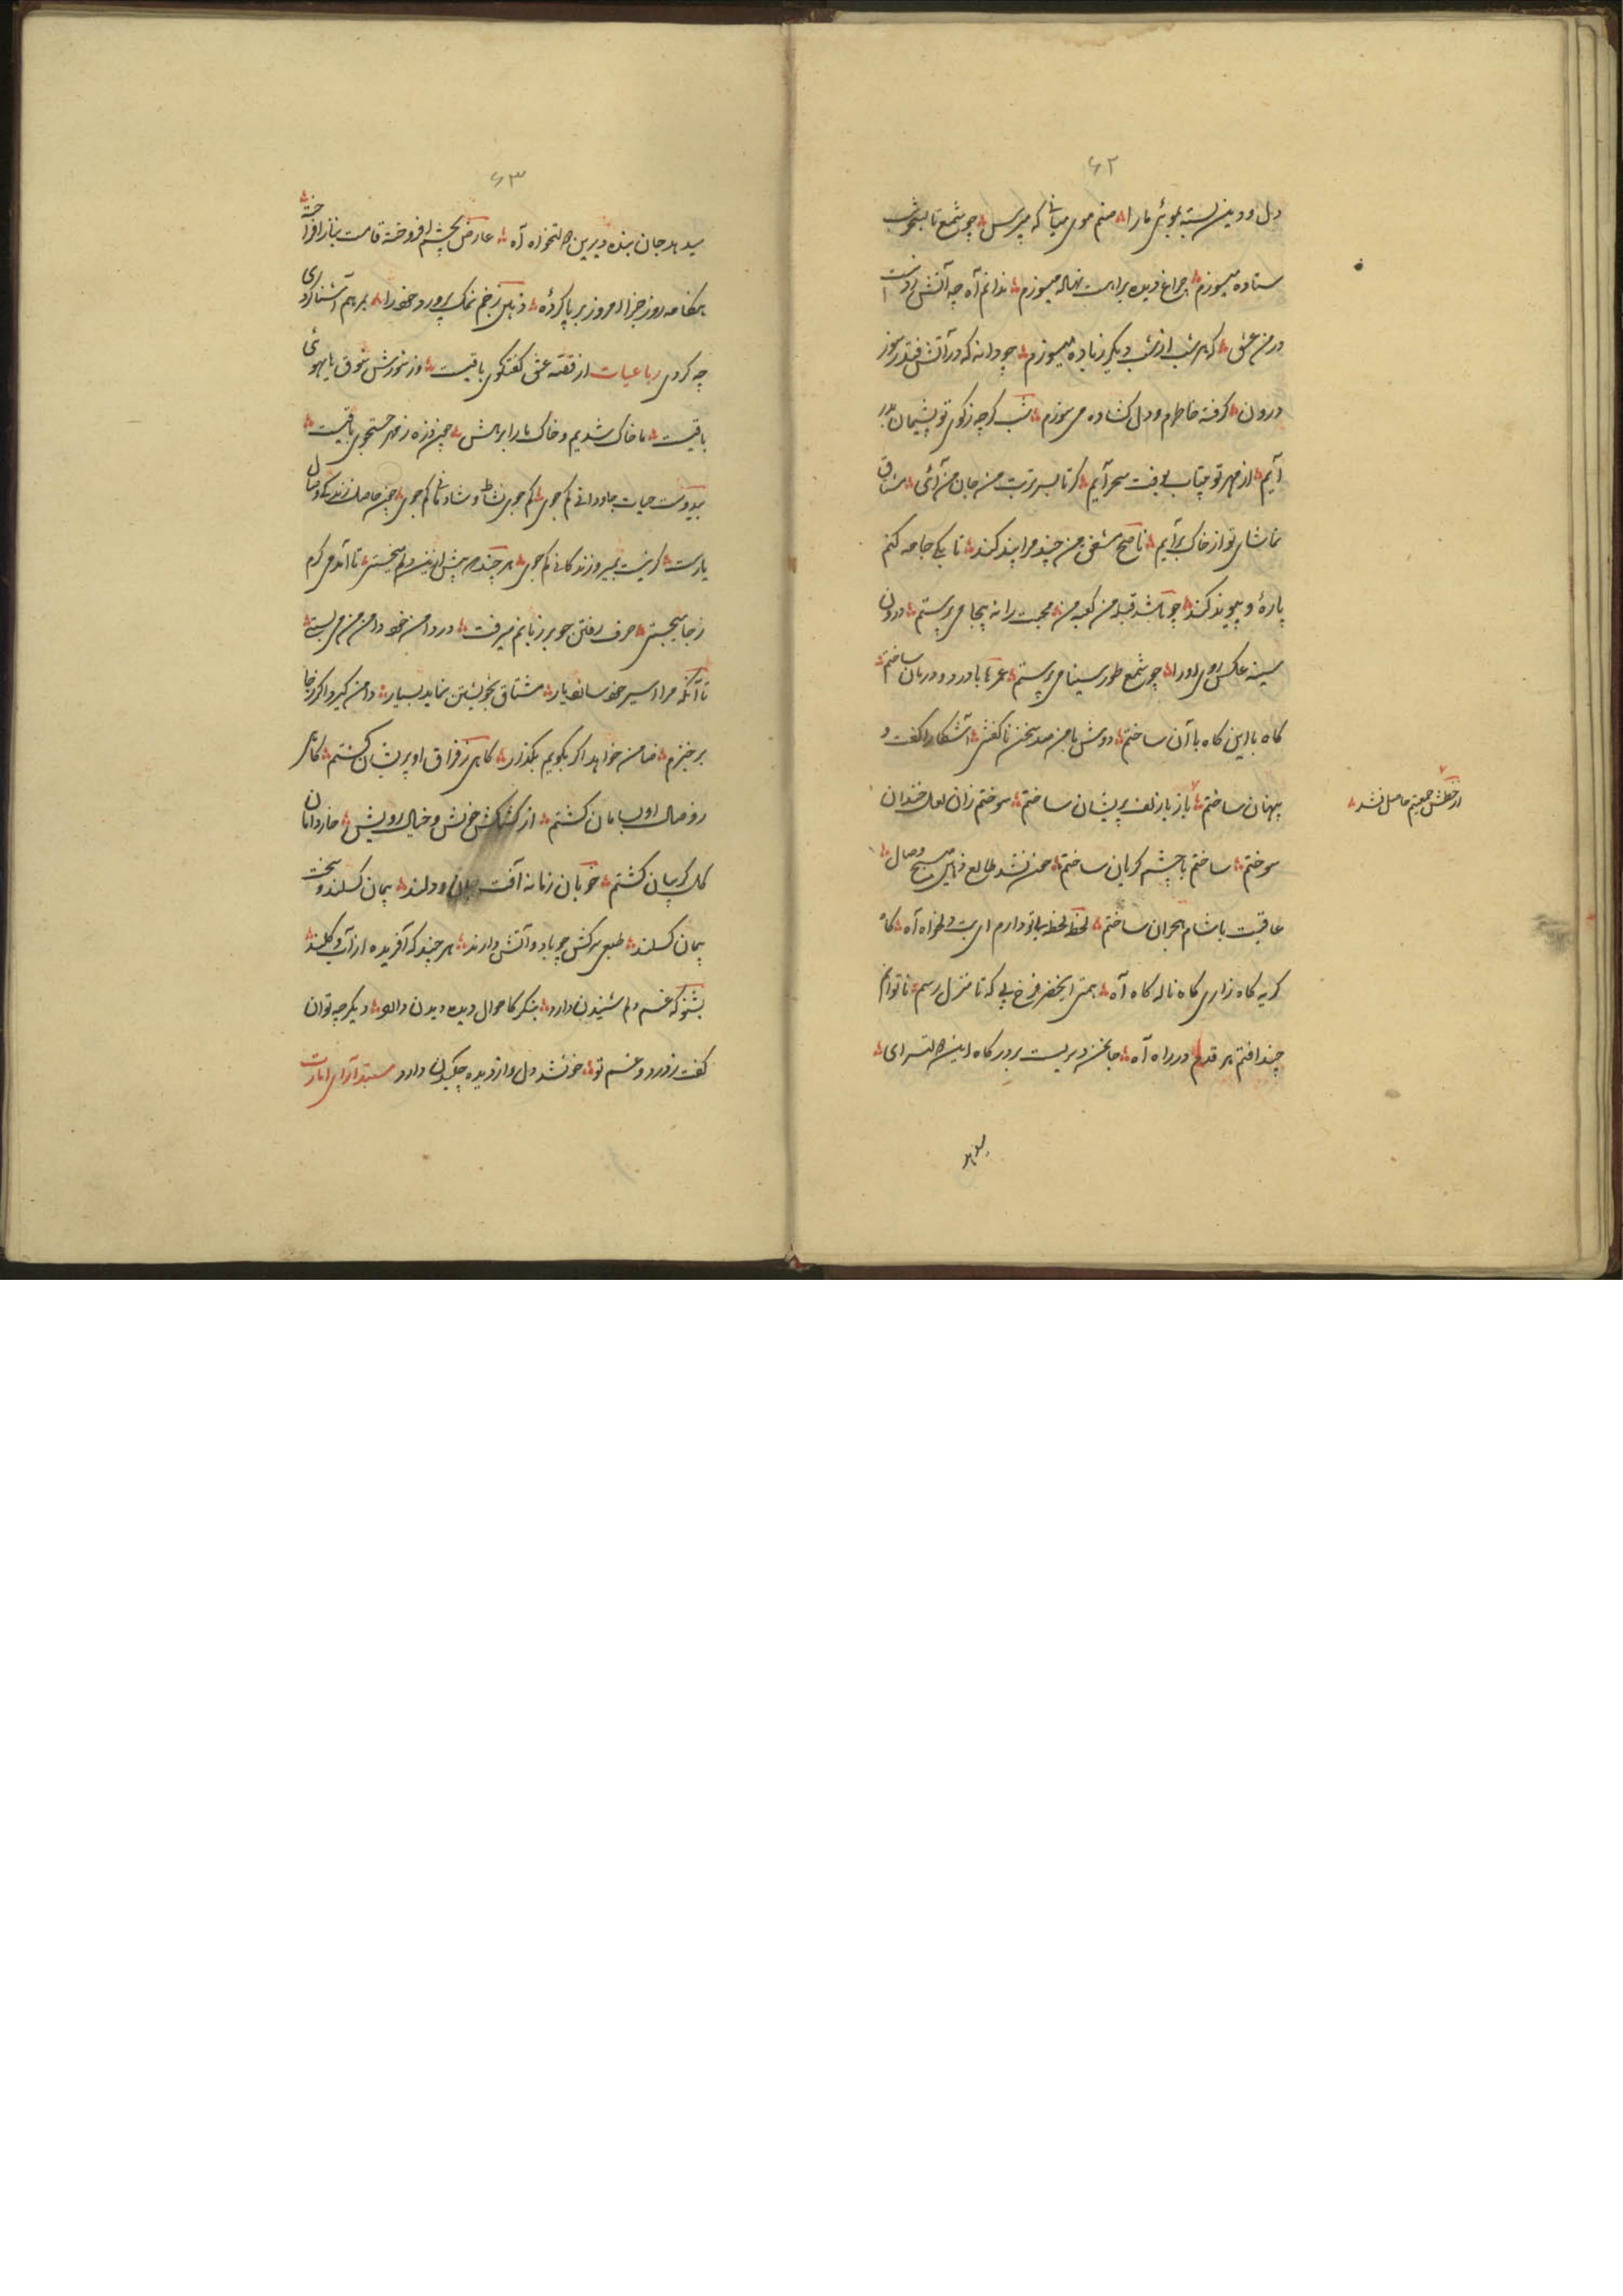 ۶۲
دل و دین بسته بموئی مارا منم موی میانی که مپرس چو شمع تا بسحر شب
ستاده میسوزم چراغ دیده براهت نهاده میسوزم ندانم آه چه آتش زدست
در من عشق که هر شب از شب دیگر زیاده میسوزم چو دانه که در آتش فتد ز سوز
درون گرفته خاطرم و دل کشاده می سوزم شب گرچه ز کوی تو پشیمان بدر
آیم از مهر تو بیتاب بوقت سحر آیم گر تا بسر تربت من جان من آئی مشتاق
تماشای تو از خاک برآیم ناصح مشفق من چند مرا پند کند تا یکی جامه کنم
پاره و پیوند کند چو باشد قبله من کعبه من محبت را نه بیجا می پرستم درون
سینه عکس روی او را چو شمع طور سینا می پرستم عمرها با درد و درمان ساختم
گاه با این گاه با آن ساختم دوش با من صد سخن ناگفتنی آشکارا گفت و
پنهان ساختم باز با زلف پریشان ساختم سوختم زان لعل خندان
از خطش جمعیتم حاصل نشد
سوختم ساختم با چشم گریان ساختم چون نشد طالع ز من صبح وصال
عاقبت با شام هجران ساختم لحظه لحظه بی تو دارم ای بت دلخواه آه گاه
گریه گاه زاری گاه ناله گاه آه همتی ای خضر فرخ پی که تا منزل رسم ناتوانم
چند افتم هر قدم در راه آه جانحزن دیریست بر درگاه این
میدهد
۶۳
میدهد جان بنده دیرین آه عارض بچشم افروخته قامت بناز افراخته
هنگامه روز جزا امروز بر پا کرده ز بس زخم نمک پرورد خود را بمرهم آشنا کردی
چه کردی رباعیات از قصه عشق گفتگوی باقیست وز شورش شوق هایهوئی
باقیست ما خاک شدیم و خاک ما را براهش چون ذره ز مهر جستجوی باقیست
بیدوست حیات جاودانی کم جوی کم جوی نشاط و شادمانی کم جوی چون حاصل زندگی وصال
یارست گر نیست بمیر و زندگانی کم جوی هر چند که پیش ازین دلم میخستی تا آمدمی گرم
ز جا میجستی حرف رفتن چو بر زبانم میرفت در دامن خود دامن من می بستی
تا آنکه مرا اسیر خود سازد یار مشتاق بخویشتن نماید بسیار دامن گیرد اگر ز جا
برخیزم ضامن خواهد اگر بگویم بگذار گاهی ز فراق او پریشان گشتم گاهی
ز وصال او بسامان گشتم از کشمکش خویش و خیال رویش خار دامان
گل گریبان گشتم خوبان زمانه آفت جان و دلند پیمان گسلند و سخت
پیمان گسلند طبعی سرکش چو باد و آتش دارند هر چند که آفریده از آب و گلند
بشنو که غم دلم شنیدن دارد بنگر که احوال دیده دیدن دارد دیگر چه توان
گفت ز درد و غم تو خون شد دل و از دیده چکیدن دارد مسند آرای امارت